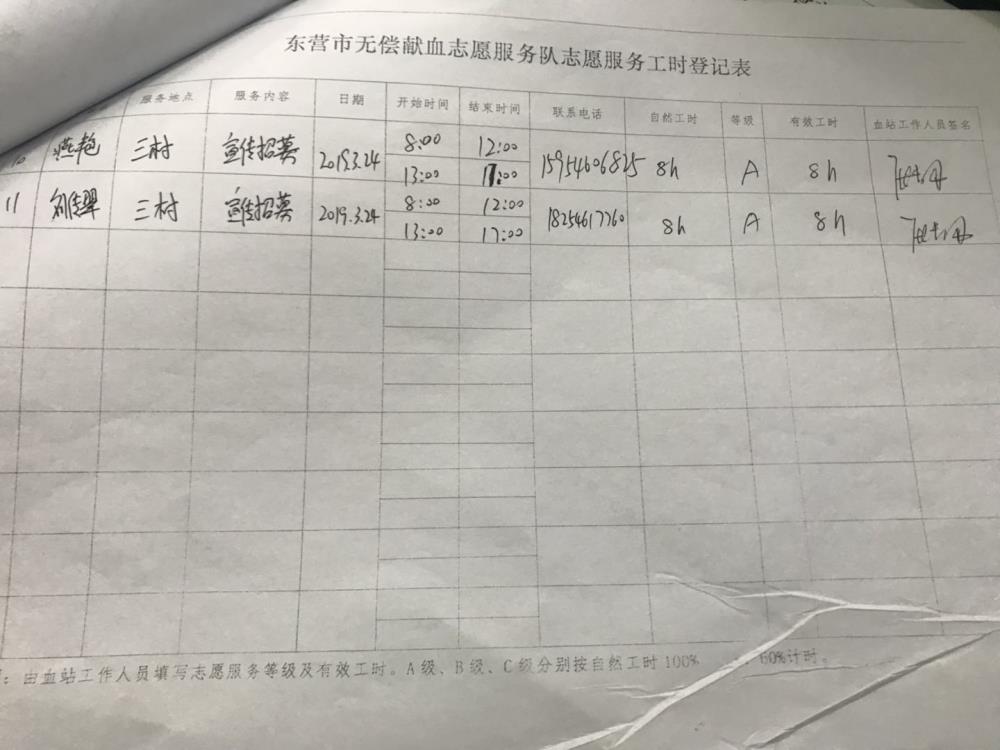 东营市无偿献血志愿服务队志愿服务工时登记表
服务地点 服务内容 日期 开始时间 结束时间 联系电话 自然工时 等级 有效工时 血站工作人员签名
燕艳 三村 宣传招募 2019.3.24 8:00 12:00 15954606825 8h A 8h
13:00 17:00
11 三村 宣传招募 2019.3.24 8:00 12:00 18254617760 8h A 8h
13:00 17:00
：由血站工作人员填写志愿服务等级及有效工时。A级、B级、C级分别按自然工时100% 60%计时。